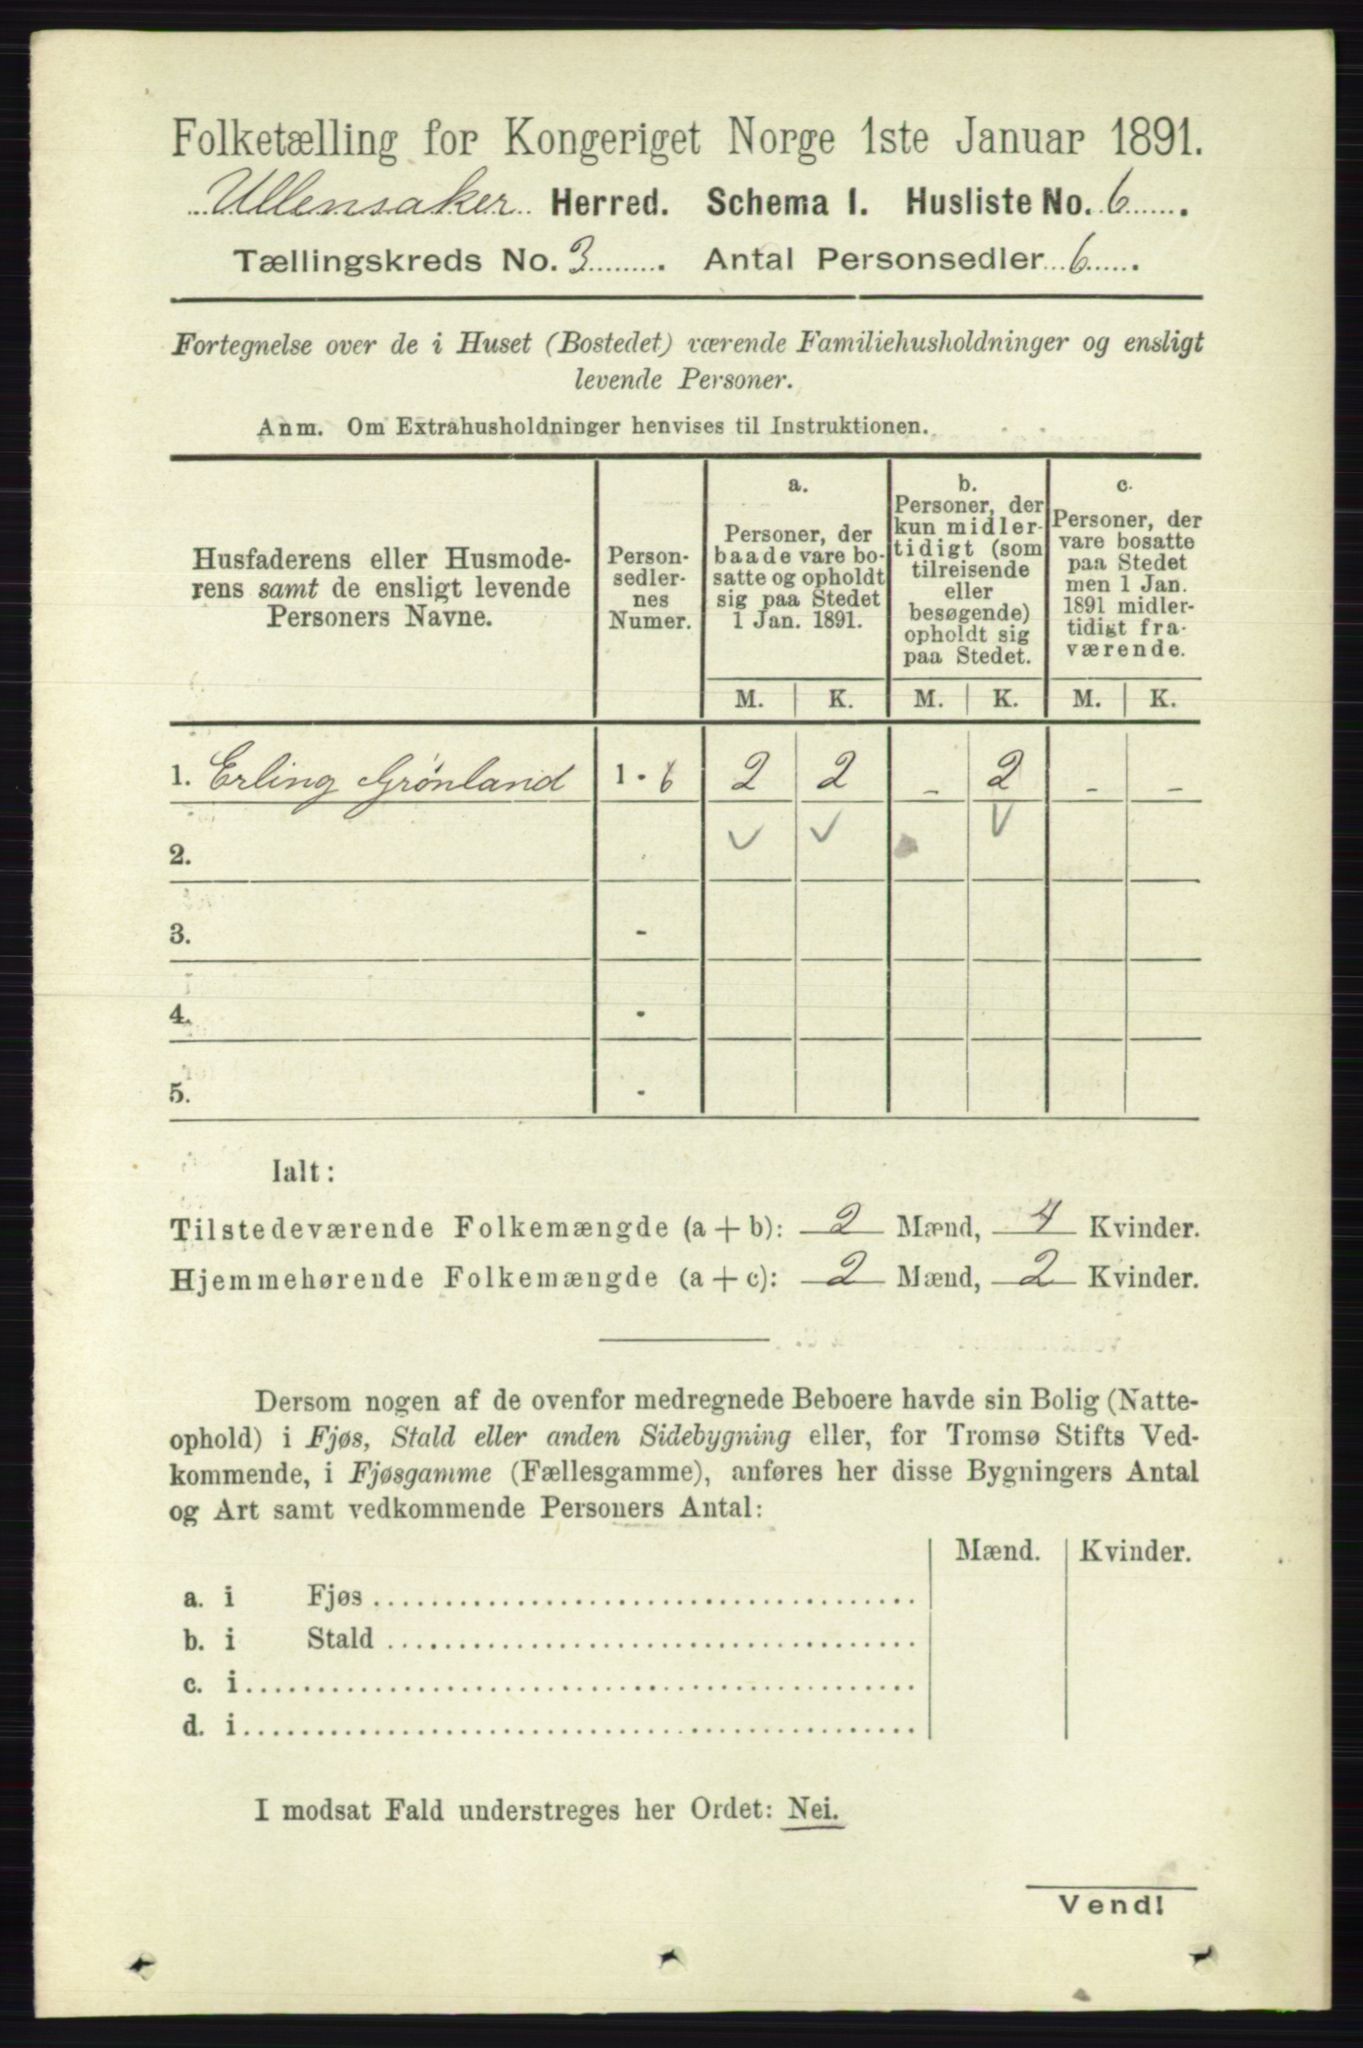 Folketælling for Kongeriget Norge 1ste Januar 1891.
Ullensaker Herred. Schema 1. Husliste No. 6
Tællingskreds No. 3. Antal Personsedler 6.
Fortegnelse over de i Huset (Bostedet) værende Familiehusholdninger og ensligt
levende Personer.
Anm. Om Extrahusholdninger henvises til Instruktionen.
Husfaderens eller Husmode-
rens samt de ensligt levende
Personers Navne.
Person-
sedler-
nes
Numer.
a.
Personer, der
baade vare bo-
satte og opholdt
sig paa Stedet
1 Jan. 1891.
b.
Personer, der
kun midler-
tidigt (som
tilreisende
eller
besøgende)
opholdt sig
paa Stedet.
c.
Personer, der
vare bosatte
paa Stedet
men 1 Jan.
1891 midler-
tidigt fra-
værende.
M. K. M. K. M. K.
1. Erling Grönland 1 - 6 2 2 - 2 - -
2.
3. -
4. -
5. -
Ialt:
Tilstedeværende Folkemængde (a + b): 2 Mænd, 4 Kvinder.
Hjemmehørende Folkemængde (a + c): 2 Mænd, 2 Kvinder.
Dersom nogen af de ovenfor medregnede Beboere havde sin Bolig (Natte-
ophold) i Fjøs, Stald eller anden Sidebygning eller, for Tromsø Stifts Ved-
kommende, i Fjøsgamme (Fællesgamme), anføres her disse Bygningers Antal
og Art samt vedkommende Personers Antal:
Mænd. Kvinder.
a. i Fjøs
b. i Stald
c. i
d. i
I modsat Fald understreges her Ordet: Nei.
Vend!